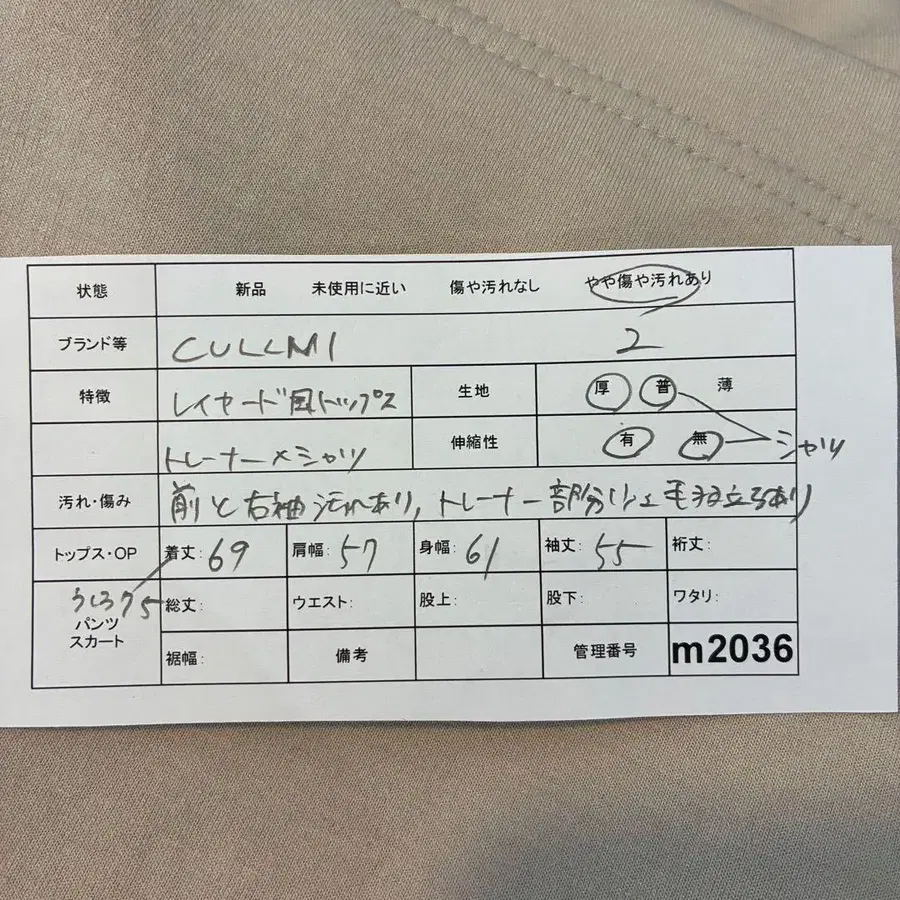 状態 新品 未使用に近い 傷や汚れなし やや傷や汚れあり
ブランド等 CULLMI 2
特徴 レイヤード風トップス 生地 厚 普 薄
トレーナー×シャツ 伸縮性 有 無 シャツ
汚れ・傷み 前と右袖汚れあり, トレーナー部分少し毛羽立ちあり
トップス・OP 着丈: 69 肩幅: 57 身幅: 61 袖丈: 55 裄丈:
うしろ75
パンツ スカート 総丈: ウエスト: 股上: 股下: ワタリ:
裾幅: 備考 管理番号 m2036